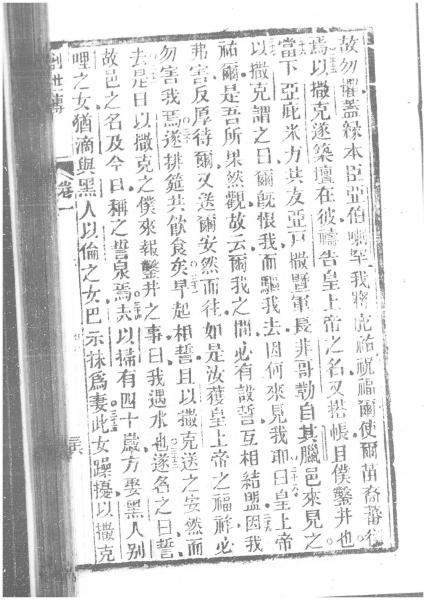 故勿懼蓋緣本臣亞伯喇罕我將庇祐祝福爾使爾苗裔蕃衍
焉以撒克遂築壇在彼禱告皇上帝之名又搭帳且僕鑿井也
當下亞庇米力共友亞戶撒暨軍長非哥勒自其臘邑來見之
以撒克謂之曰爾既恨我而驅我去因何來見我耶曰皇上帝
祐爾是吾所果然觀故云爾我之間必有設誓互相結盟因我
弗害反厚待爾又送爾安然而往如是汝獲皇上帝之福祥必
勿害我焉遂排筵共飲食矣早起相誓且以撒克送之安然而
去是日以撒克之僕來報鑿井之事曰我遇水也遂名之曰誓
故邑之名及今日稱之誓泉焉夫以掃有四十歲方娶黑人別
哩之女猶滴與黑人以倫之女巴示抹爲妻此女躁擾以撒克
創世傳 卷一